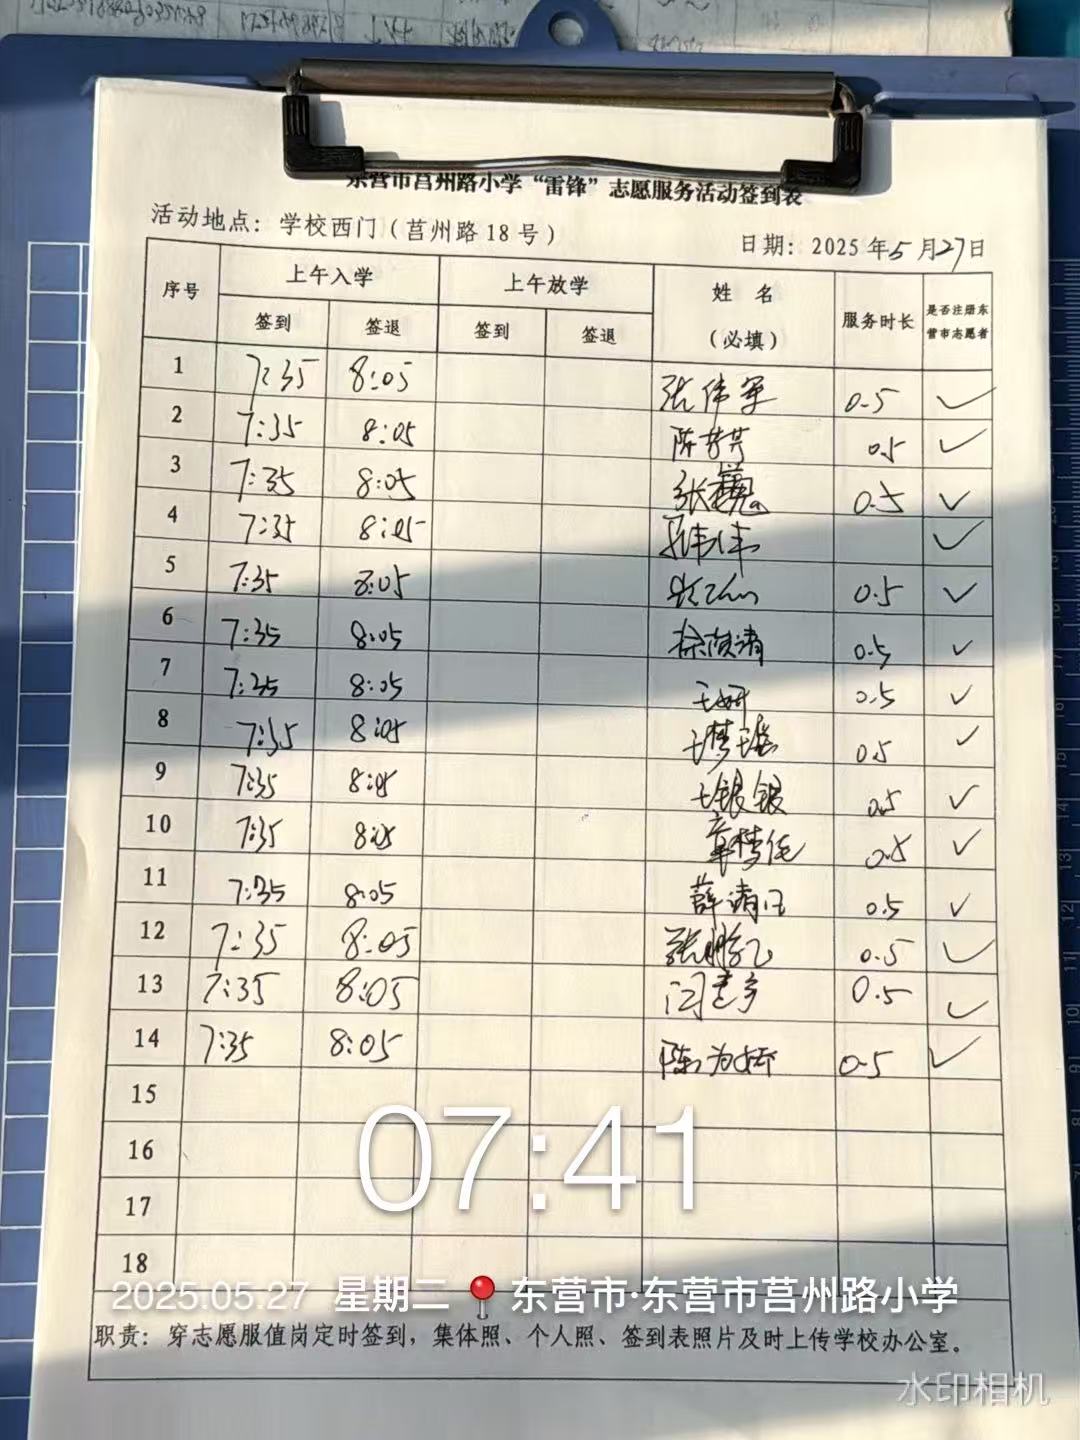 东营市莒州路小学“雷锋”志愿服务活动签到表
活动地点：学校西门（莒州路18号）
日期：2025年5月27日
序号 上午入学 上午放学 姓名（必填） 服务时长 是否注册东营市志愿者
签到 签退 签到 签退
1 7:35 8:05 张伟军 0.5 ✓
2 7:35 8:05 陈芳芳 0.5 ✓
3 7:35 8:05 张巍 0.5 ✓
4 7:35 8:05 ✓
5 7:35 8:05 0.5 ✓
6 7:35 8:05 0.5 ✓
7 7:35 8:05 王妍 0.5 ✓
8 7:35 8:05 王梦瑶 0.5 ✓
9 7:35 8:05 王银银 0.5 ✓
10 7:35 8:05 0.5 ✓
11 7:35 8:05 薛清 0.5 ✓
12 7:35 8:05 张鹏飞 0.5 ✓
13 7:35 8:05 0.5 ✓
14 7:35 8:05 陈为娇 0.5 ✓
15
16
17
18
07:41
2025.05.27 星期二 东营市·东营市莒州路小学
职责：穿志愿服值岗定时签到，集体照、个人照、签到表照片及时上传学校办公室。
水印相机